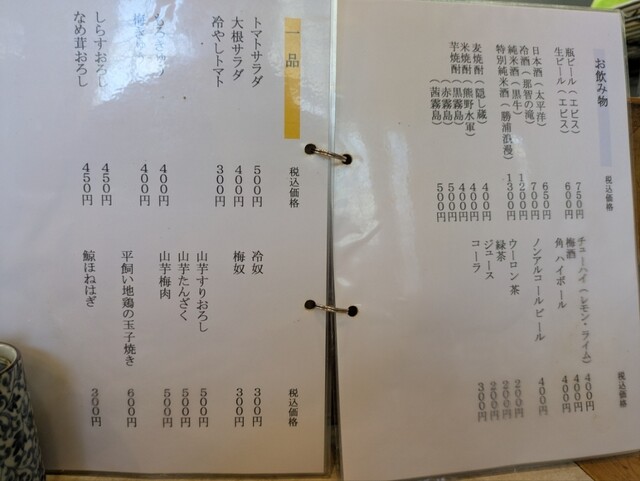 お飲み物
税込価格
瓶ビール（エビス） 750円
生ビール（エビス） 600円
日本酒（太平洋） 650円
冷酒（那智の滝） 700円
純米酒（黒牛） 1200円
特別純米酒（勝浦浪漫） 1300円
麦焼酎（隠し蔵） 400円
米焼酎（熊野水軍） 400円
芋焼酎（黒霧島） 400円
（赤霧島） 500円
（茜霧島） 500円
税込価格
チューハイ（レモン・ライム） 400円
梅酒 400円
角 ハイボール 400円
ノンアルコールビール 400円
ウーロン茶 200円
緑茶 200円
ジュース 200円
コーラ 300円
一品
税込価格
トマトサラダ 500円
大根サラダ 400円
冷やしトマト 300円
400円
400円
しらすおろし 450円
なめ茸おろし 450円
税込価格
冷奴 300円
梅奴 300円
山芋すりおろし 500円
山芋たんざく 500円
山芋梅肉 500円
平飼い地鶏の玉子焼き 600円
鯨ほねはぎ 300円